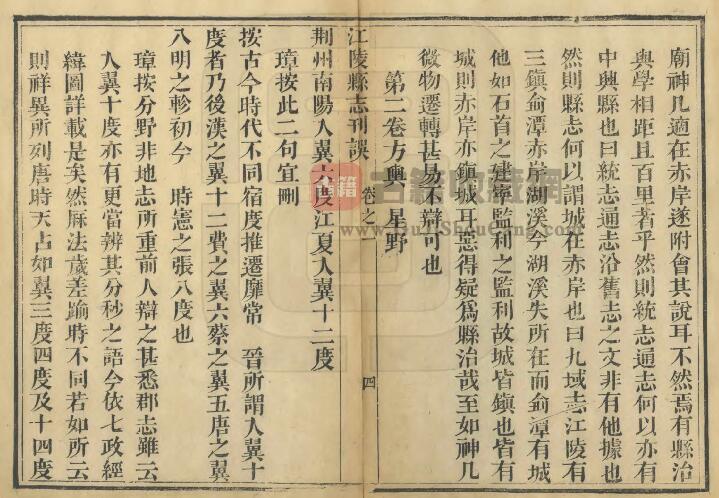 廟神几適在赤岸遂附會其說耳不然焉有縣治
與學相距且百里者乎然則統志通志何以亦有
中興縣也曰統志通志沿舊志之文非有他據也
然則縣志何以謂城在赤岸也曰九域志江陵有
三鎮俞潭赤岸湖溪今湖溪失所在而俞潭有城
他如石首之建寧監利之監利故城皆鎮也皆有
城則赤岸亦鎮城耳惡得疑為縣治哉至如神几
微物遷轉甚易不辯可也
第二卷方輿 星野
江陵縣志刊誤 卷之一 四
荆州南陽入翼六度江夏入翼十二度
璋按此二句宜刪
按古今時代不同宿度推遷靡常 晉所謂入翼十
度者乃後漢之翼十二費之翼六蔡之翼五唐之翼
八明之軫初今 時憲之張八度也
璋按分野非地志所重前人辯之甚悉郡志雖云
入翼十度亦有更當辨其分秒之語今依七政經
緯圖詳載是矣然厤法歲差踰時不同若如所云
則祥異所列唐時天占如翼三度四度及十四度